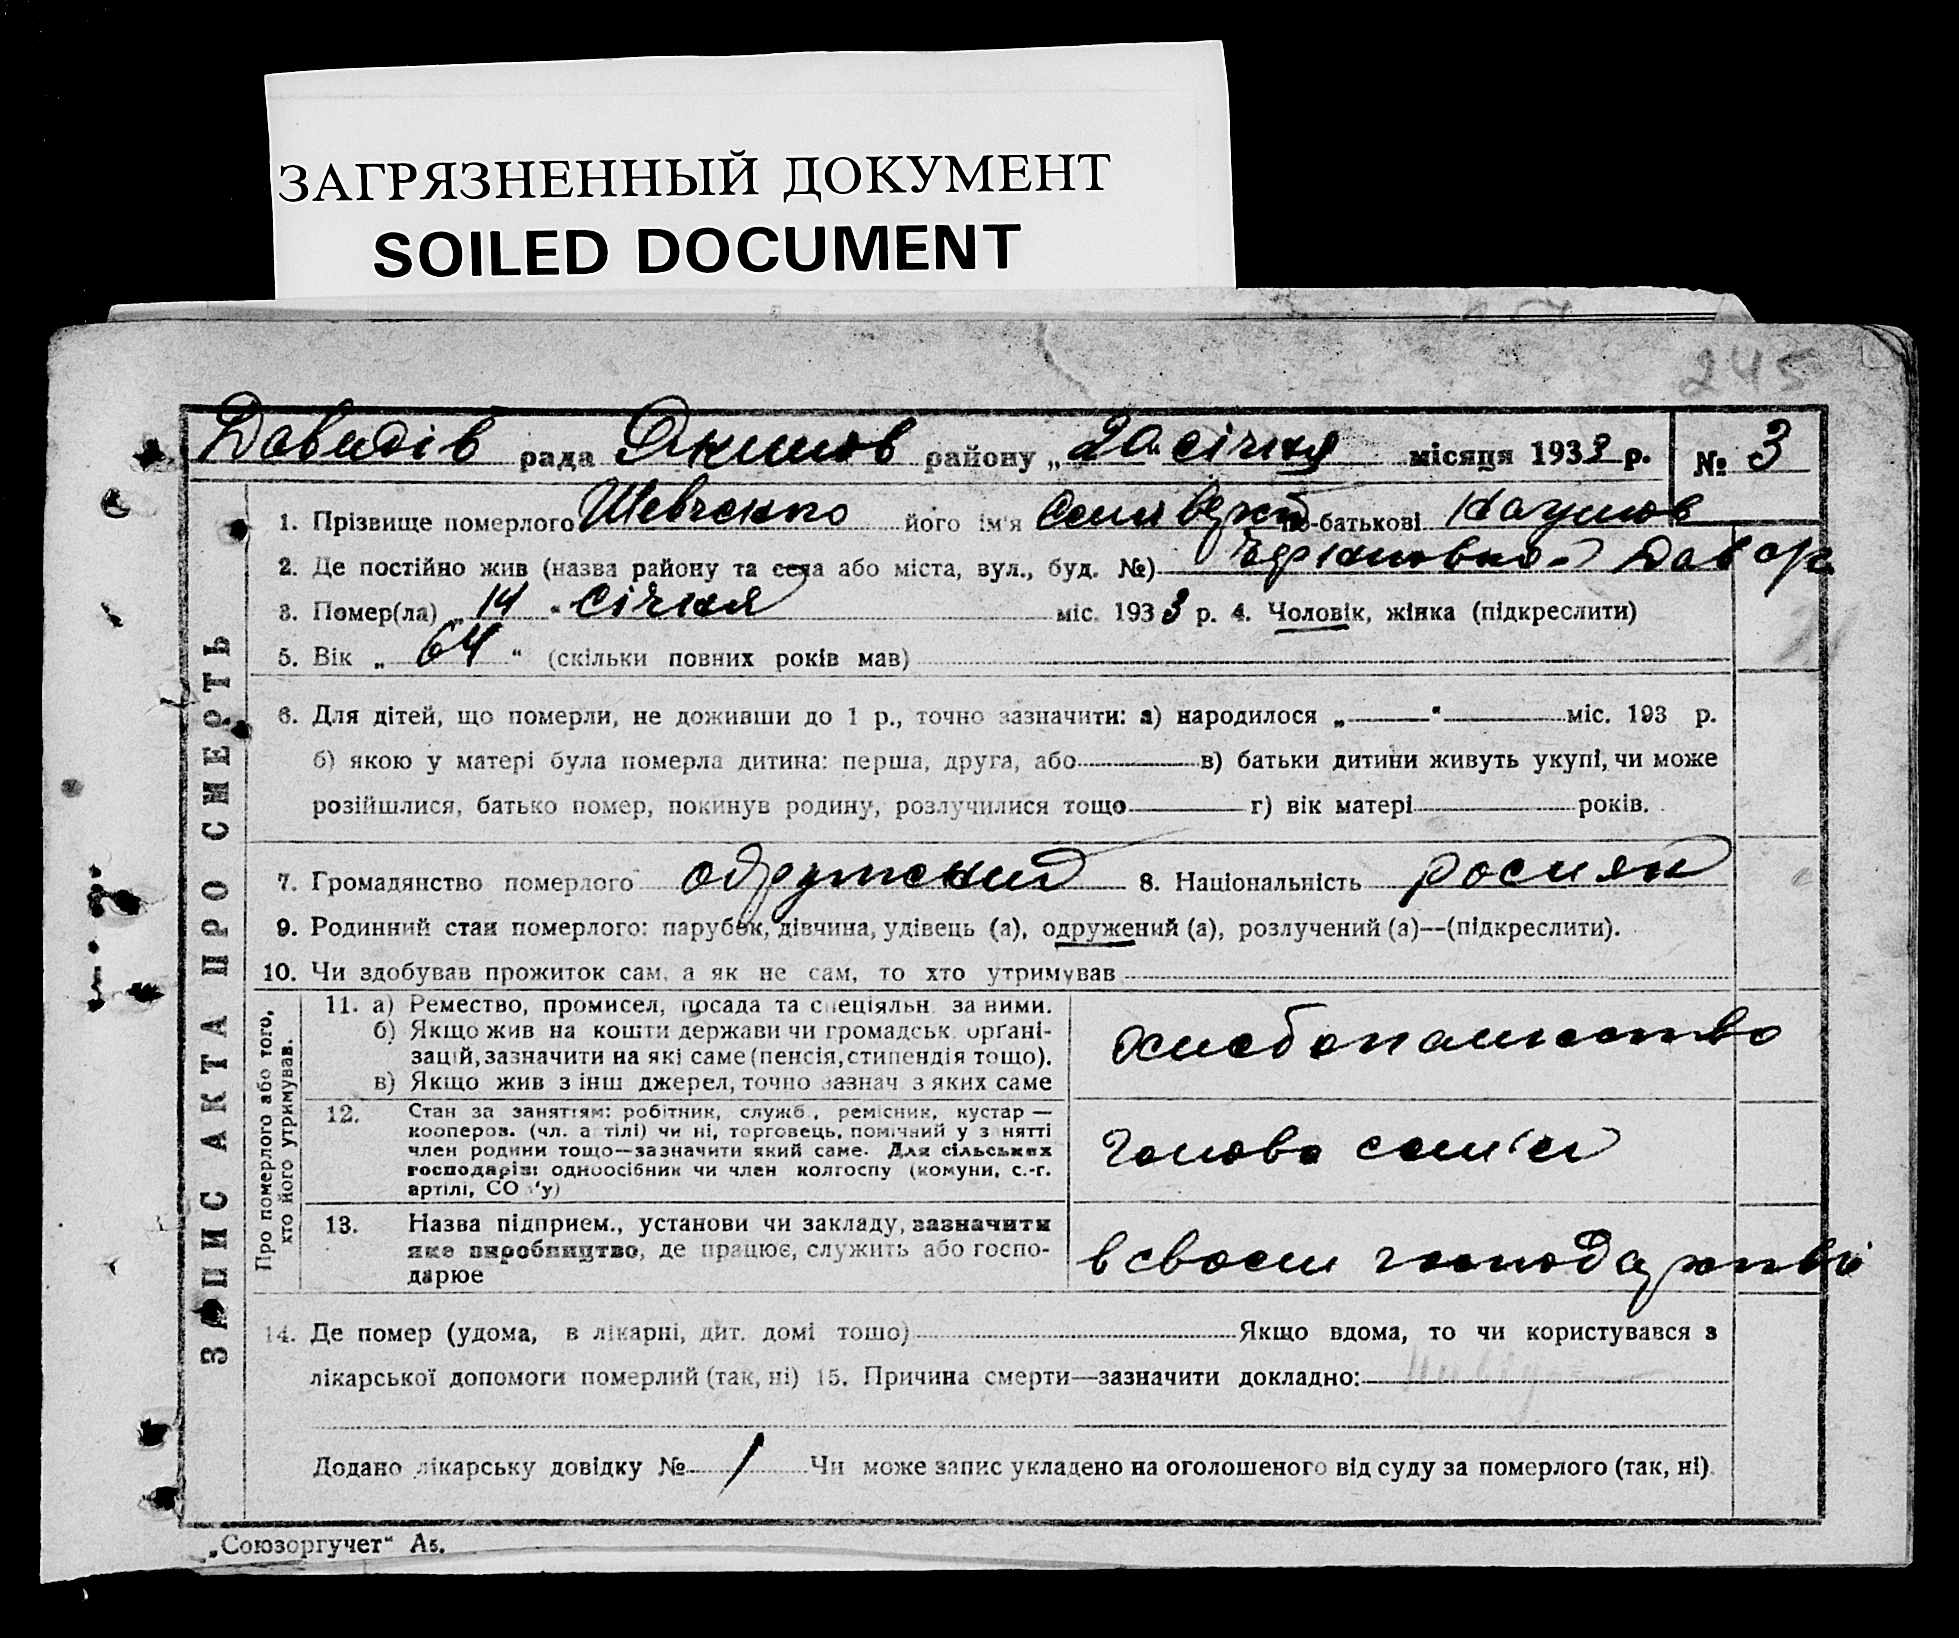 ЗАГРЯЗНЕННЫЙ ДОКУМЕНТ
SOILED DOCUMENT
245
Давидів рада Якимов району „20“ січня місяця 1933 р. № 3
ЗАПИС АКТА ПРО СМЕРТЬ
1. Прізвище померлого Шевченко його ім'я по-батькові Наумов
2. Де постійно жив (назва району та села або міста, вул., буд. №)
3. Помер(ла) „14“ січня міс. 1933 р. 4. Чоловік, жінка (підкреслити)
5. Вік „64“ (скільки повних років мав)
6. Для дітей, що померли, не доживши до 1 р., точно зазначити: а) народилося „ “ міс. 193 р.
б) якою у матері була померла дитина: перша, друга, або в) батьки дитини живуть укупі, чи може
розійшлися, батько помер, покинув родину, розлучилися тощо г) вік матері років.
7. Громадянство померлого 8. Національність росиян
9. Родинний стан померлого: парубок, дівчина, удівець (а), одружений (а), розлучений (а)—(підкреслити).
10. Чи здобував прожиток сам, а як не сам, то хто утримував
Про померлого або того,
хто його утримував.
11. а) Ремество, промисел, посада та спеціяльн. за ними.
б) Якщо жив на кошти держави чи громадськ. орґані-
зацій, зазначити на які саме (пенсія, стипендія тощо).
в) Якщо жив з інш джерел, точно зазнач з яких саме
хлебопашество
12. Стан за заняттям: робітник, служб., ремісник, кустар —
кооперов. (чл. артілі) чи ні, торговець, помічний у занятті
член родини тощо—зазначити який саме. Для сільських
господарів: одноосібник чи член колгоспу (комуни, с.-г.
артілі, СОЗ'у)
голова сем'ї
13. Назва підприєм., установи чи закладу, зазначити
яке виробництво, де працює, служить або госпо-
дарює
в своєм господарстві
14. Де помер (удома, в лікарні, дит. домі тощо) Якщо вдома, то чи користувався з
лікарської допомоги померлий (так, ні) 15. Причина смерти—зазначити докладно:
Додано лікарську довідку № / Чи може запис укладено на оголошеного від суду за померлого (так, ні).
„Союзоргучет“ А5.